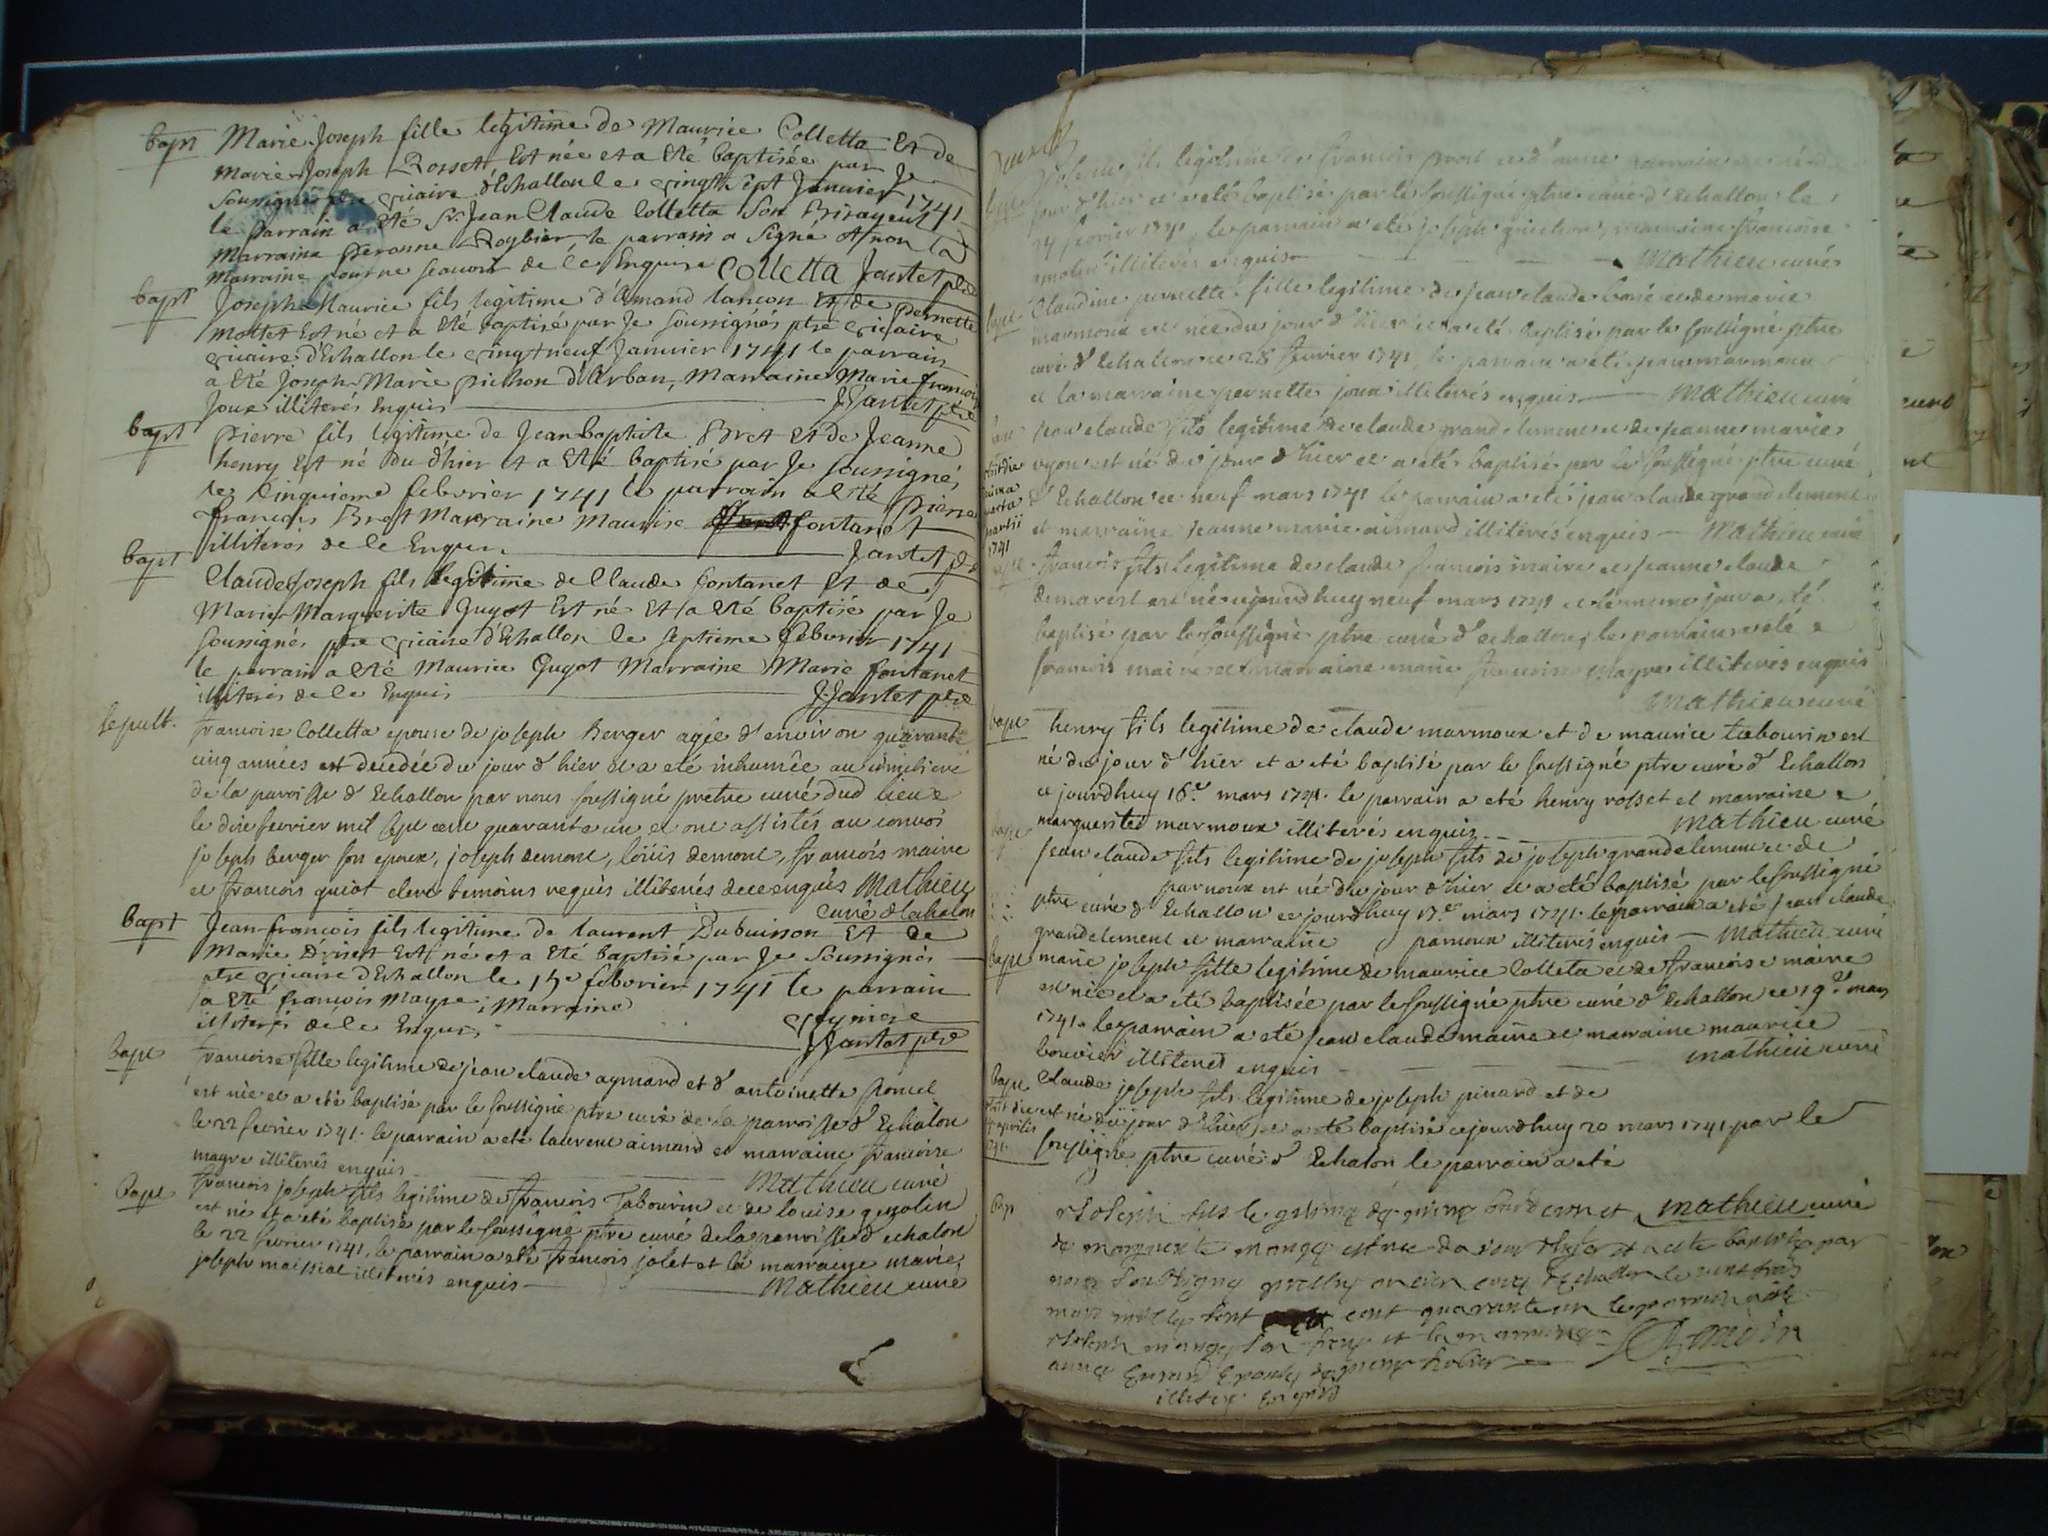 bapt Marie Joseph fille legitime de Maurice Colletta Et de
Marie Joseph Rosset Est née et a Eté baptisée par Je
Soussigné ptre vicaire d'Echallon le vingt sept Janvier 1741
le parrain a Eté Sr. Jean Claude Colletta Son Bisayeul
Marraine Peronne Roybier le parrain a Signé et non la
Marraine pour ne scavoir de ce Enquise Colletta Jantet ptre
bapt Joseph Maurice fils legitime d'Amand lancon Et de Pernette
Mottet Est né et a Eté baptisé par Je soussignés ptre vicaire
vicaire d'Echallon le vingt neuf Janvier 1741 le parrain
a Eté Joseph Marie pichon d'Arban, Marraine Marie francoise
Joux illiterés Enquis J Jantet ptre
bapt Pierre fils legitime de Jean baptiste Bret Et de Jeanne
henry Est né du d'hier et a Eté baptisé par Je soussignés
le Cinquieme febvrier 1741 le parrain a Eté Pierre
francois Bret Marraine Maurise fontanet
illiteres de ce Enquis Jantet ptre
bapt Claude Joseph fils legitime de Claude fontanet Et de
Marie Marguerite Guyot Est né Et a Eté baptisé par Je
soussignés ptre vicaire d'Echallon le septieme febvrier 1741
le parrain a Eté Maurice Guyot Marraine Marie fontanet
illiterés de ce Enquis J. Jantet ptre
sepult. francoise Colletta epouse de joseph Berger agée d'environ quarante
cinq années est decedée du jour d'hier et a eté inhumée au cimetiere
de la paroisse d'Echallon par nous soussigné pretre curé dud lieu
le dixe fevrier mil sept cent quarante un et ont assistés au convoi
joseph berger son epoux, joseph demont, loüis demont, francois maire
et francois guiot clerc temoins requis illiterés de ce enquis Mathieu
curé d'echalon
bapt Jean-francois fils legitime de laurent Dubuisson Et de
Marie Est né et a Eté baptisé par Je Soussignés
ptre vicaire d'Echallon le 15e febvrier 1741 le parrain
a Eté francois Mayre; Marraine
illiterés de ce Enquis J Jantet ptre
bapt francoise fille legitime de jean claude aymard et d'antoinette poncet
est née et a eté baptisé par le soussigné ptre curé de la paroisse d'Echalon
le 22 fevrier 1741. le parrain a eté laurent aimard et marraine francoise
mayre illiterés enquis Mathieu curé
bapt francois joseph fils legitime de francois Tabourin et de louise
est né et a eté baptisé par le soussigné ptre curé de la paroisse d'echalon
le 22 fevrier 1741, le parrain a eté francois jolet et la marraine marie
joseph maissiat illiterés enquis Mathieu curé
fils legitime de francois et d'anne
jour d'hier et a eté baptisé par le soussigné ptre curé d'Echallon le
24 fevrier 1741, le parrain a eté joseph marraine francoise
illiterés enquis Mathieu curé
bapt Claudine pernette fille legitime de jean claude et de marie
marmoux est née du jour d'hier et a eté baptisé par le soussigné ptre
curé d'Echalon ce 28 fevrier 1741, le parrain a eté jean marmoux
et la marraine pernette joux illiterés enquis Mathieu curé
jean claude fils legitime de claude grandclement et de jeanne marie
est né du jour d'hier et a eté baptisé par le soussigné ptre curé
d'Echallon ce neuf mars 1741 le parrain a eté jean claude grandclement
et marraine jeanne marie aimard illiterés enquis Mathieu curé
1741
francois fils legitime de claude francois maire et jeanne claude
demarest est né cejourdhuy neuf mars 1741 et le meme jour a eté
baptisé par le soussigné ptre curé d'echallon, le parrain a eté
francois maire et marraine marie francoise mayre illiterés enquis
Mathieu curé
bapt henry fils legitime de claude marmoux et de maurice tabourin est
né du jour d'hier et a eté baptisé par le soussigné ptre curé d'Echallon
ce jourdhuy 16e mars 1741. le parrain a eté henry rosset et marraine
marguerite marmoux illiterés enquis Mathieu curé
bapt jean claude fils legitime de joseph fils de joseph grandclement et de
parnoux est né du jour d'hier et a eté baptisé par le soussigné
ptre curé d'Echallon ce jourdhuy 17e mars 1741. le parrain a eté jean claude
grandclement et marraine parnoux illiterés enquis Mathieu curé
bapt marie joseph fille legitime de maurice Colleta et de francoise maire
est née et a eté baptisée par le soussigné ptre curé d'Echallon ce 19e mars
1741. le parrain a eté jean claude maire et marraine maurice
bouvier illiterés enquis Mathieu curé
bapt Claude joseph fils legitime de joseph pinard et de
est né du jour d'hier et a eté baptisé cejourdhuy 20 mars 1741 par le
soussigné ptre curé d'Echalon le parrain a eté
Mathieu curé
bap joseph fils legitime de pierre et
de marguerite monge est née du jour d'hier et a eté baptisé par
nous soussigné ancien curé d'Echallon le vint trois
mars mille sept cent quarante un le parrain a eté
joseph monge son frere et la marraine
anne epouse de pierre
illiteré enquis